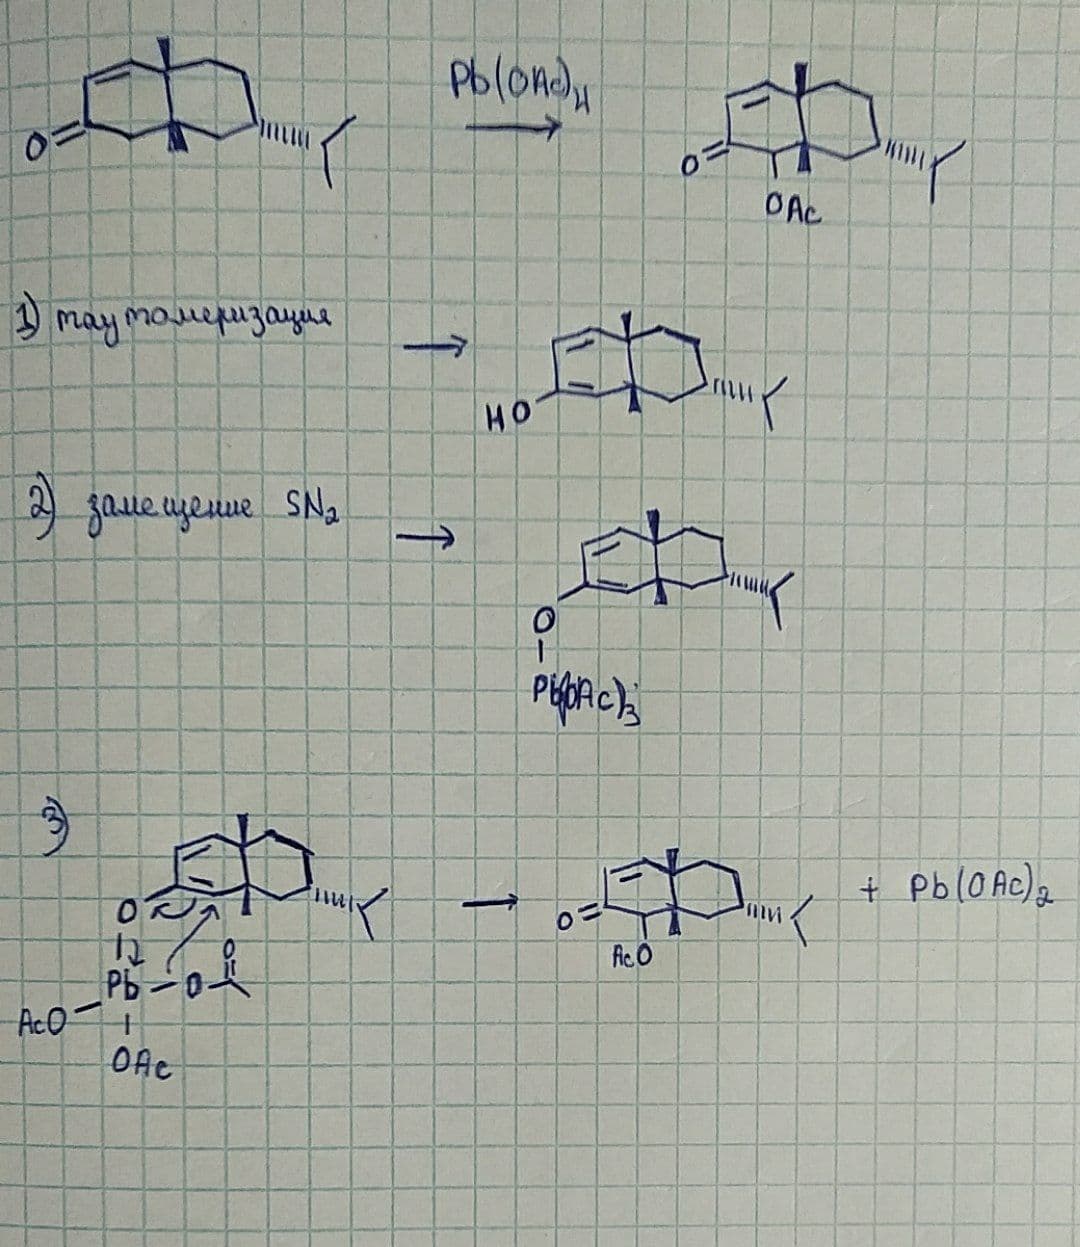 Pb(OAc)4
O
O
OAc
1) таутомеризация
HO
2) замещение SN2
O
Pb(OAc)3
3)
O
O
Pb - O
AcO
OAc
O
AcO
+ Pb(OAc)2